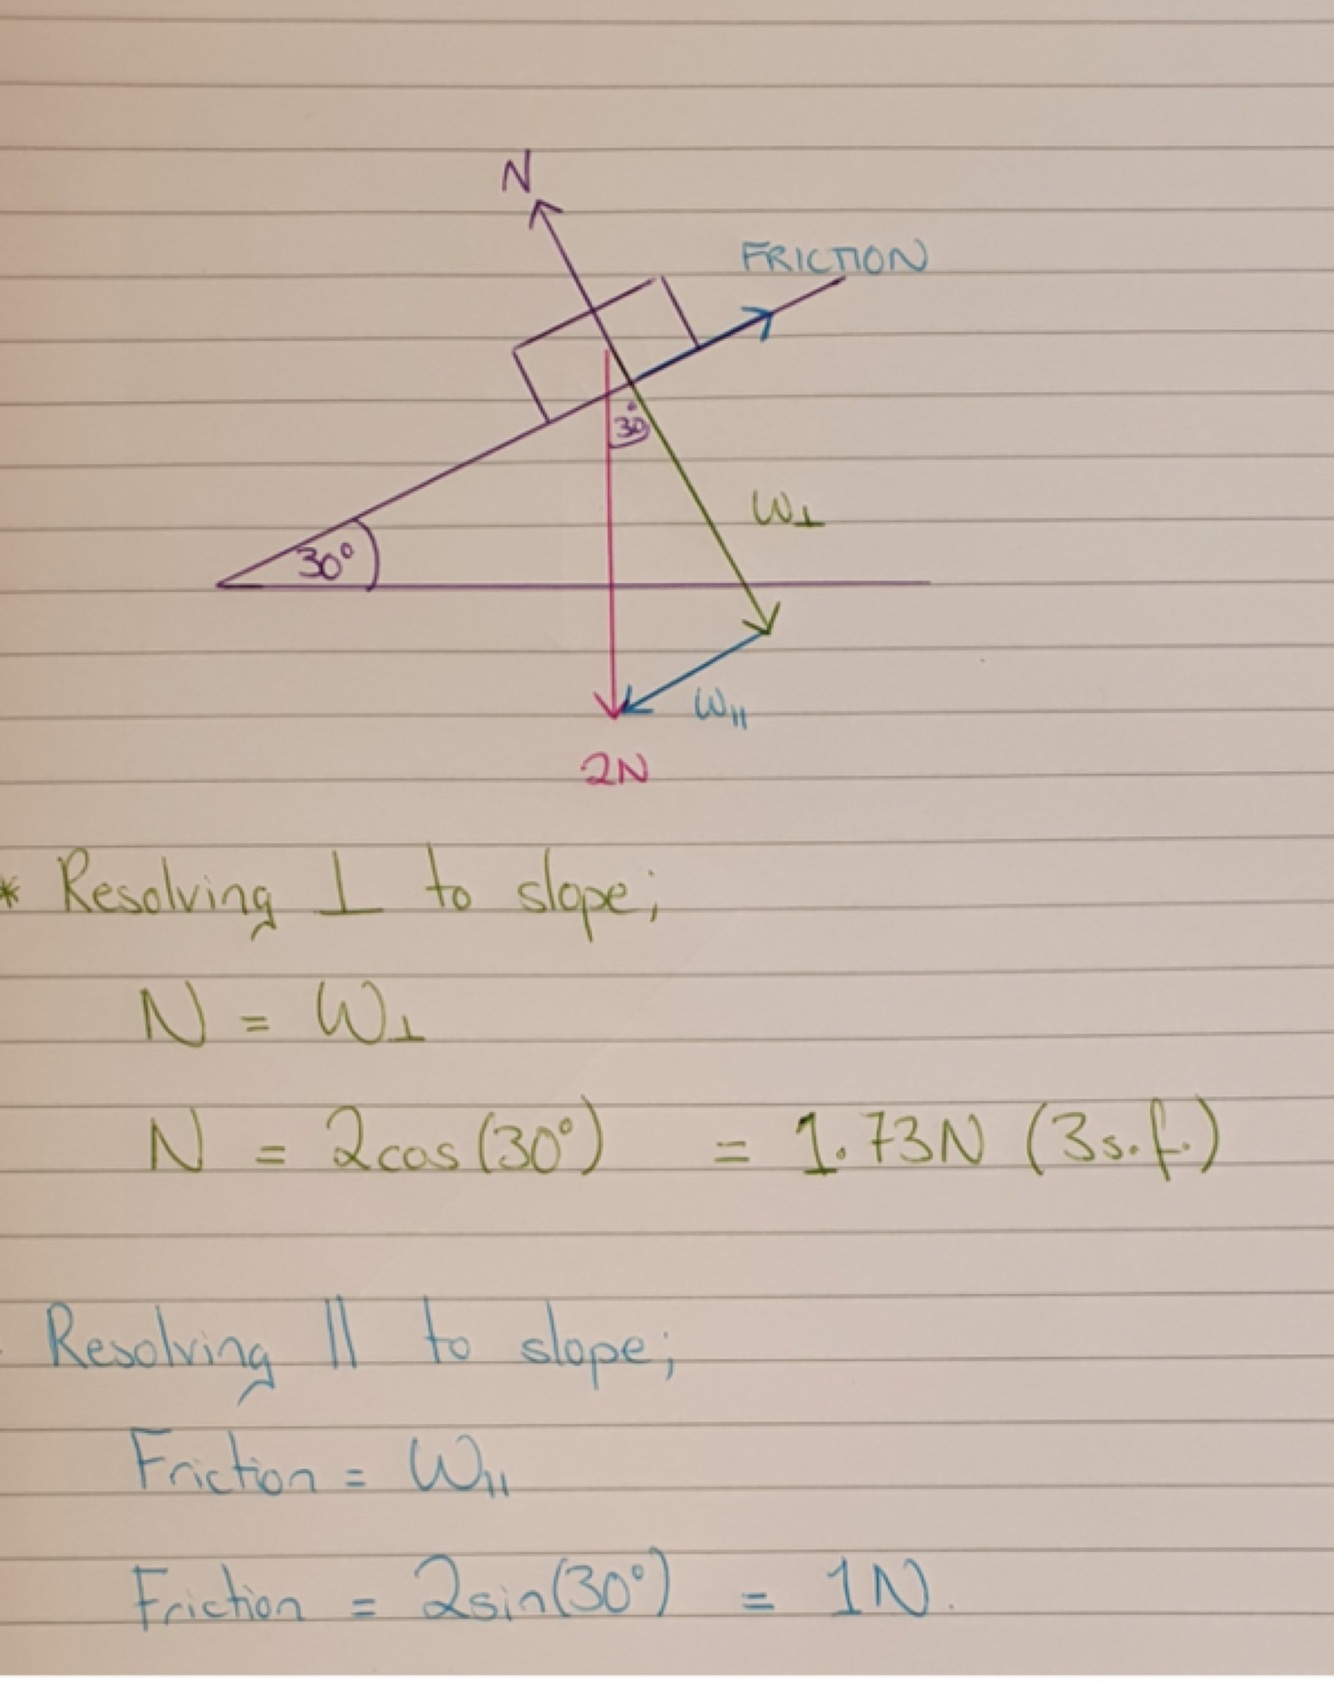 N
FRICTION
30°
W⊥
30°
W||
2N
* Resolving ⊥ to slope;
N = W⊥
N = 2cos(30°) = 1.73N (3s.f.)
Resolving || to slope;
Friction = W||
Friction = 2sin(30°) = 1N.